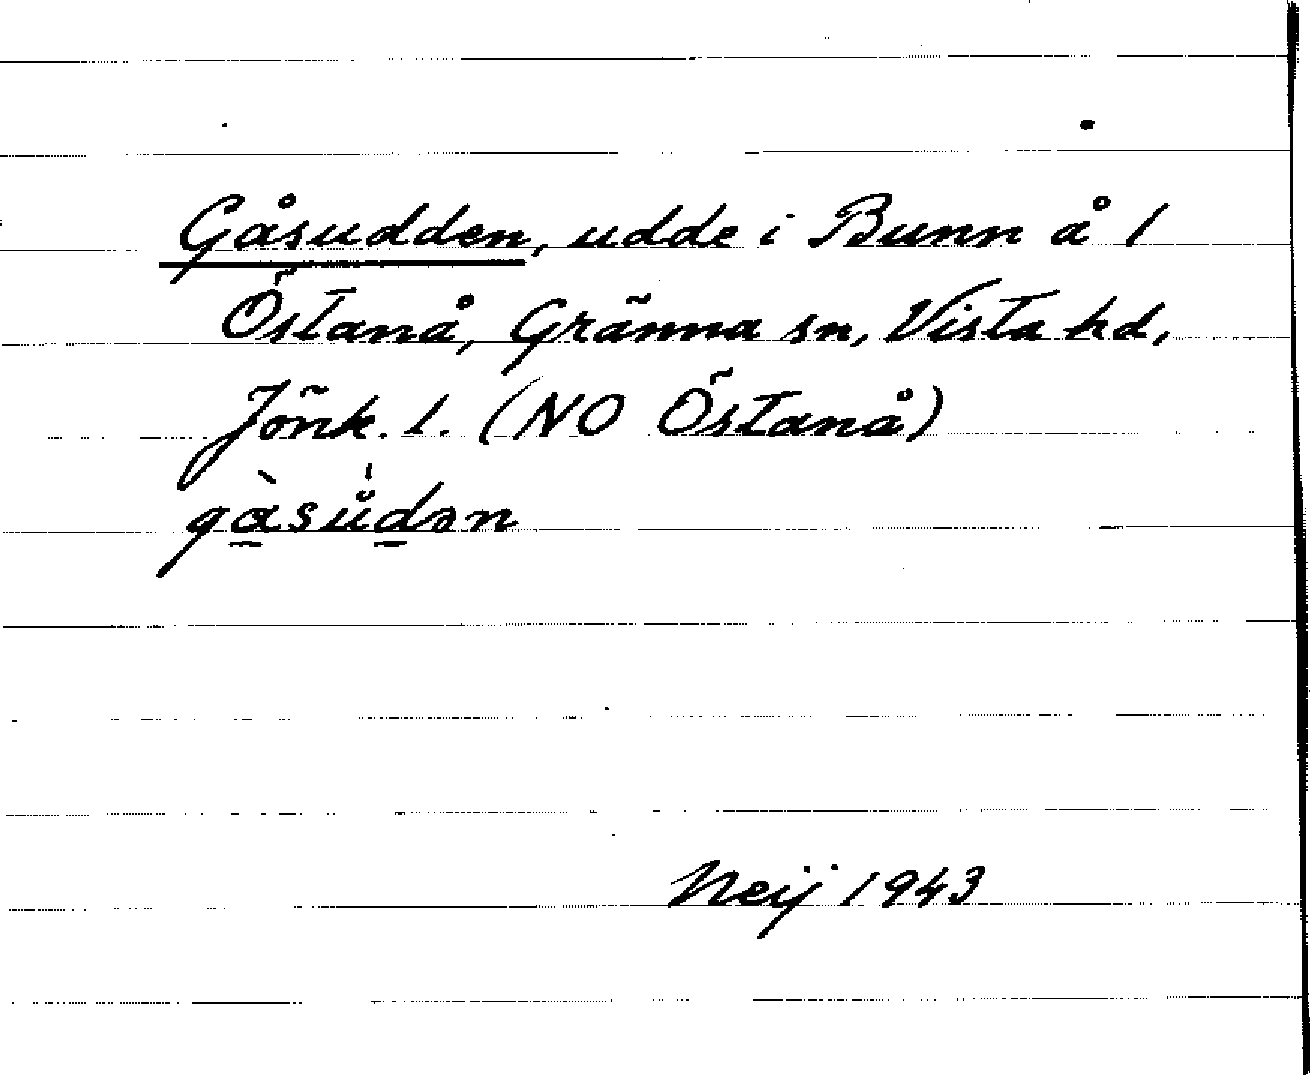 Gåsudden, udde i Bunn å 1
Östanå, Gränna sn, Vista hd,
Jönk. l. (NO Östanå)
gàsůdən
Neij 1943